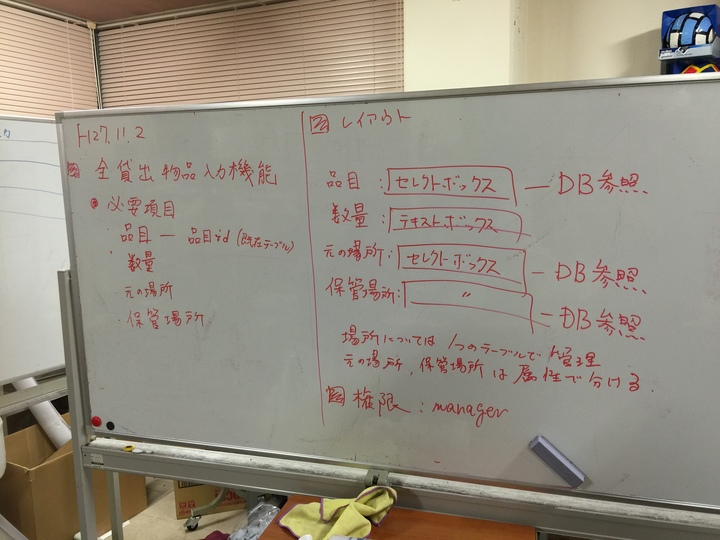 H27.11.2
全貸出物品入力機能
必要項目
・品目 ― 品目id (既存テーブル)
・数量
・元の場所
・保管場所
レイアウト
品目 : セレクトボックス ― DB参照
数量 : テキストボックス
元の場所 : セレクトボックス ― DB参照
保管場所 : 〃 ― DB参照
場所については1つのテーブルで管理
元の場所, 保管場所は属性で分ける.
権限 : manager